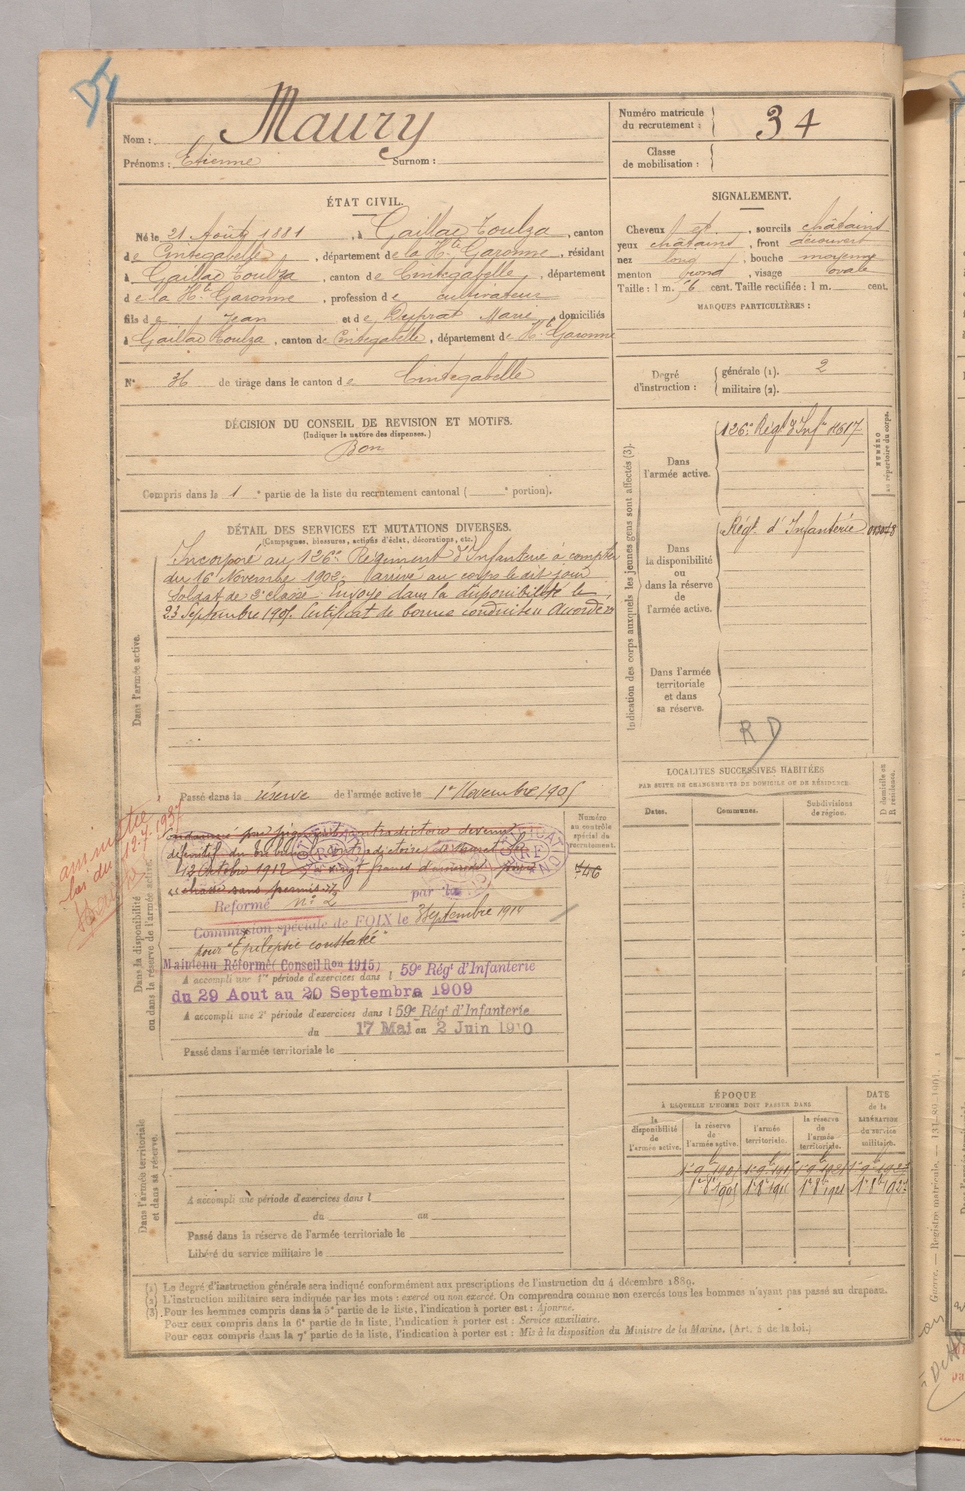 Nom : Maury
Prénoms : Etienne Surnom :
Numéro matricule du recrutement : 34
Classe de mobilisation :
ÉTAT CIVIL.
Né le 21 Août 1881, à Gaillac Toulza, canton
de Cintegabelle, département de la Hte Garonne, résidant
à Gaillac Toulza, canton de Cintegabelle, département
de la Hte Garonne, profession de cultivateur
fils de Jean et de Duprat Marie, domiciliés
à Gaillac Toulza, canton de Cintegabelle, département de Hte Garonne
N° 36 de tirage dans le canton de Cintegabelle
SIGNALEMENT.
Cheveux et, sourcils châtains
yeux châtains, front découvert
nez long, bouche moyenne
menton rond, visage ovale
Taille : 1 m. 56 cent. Taille rectifiée : 1 m. cent.
MARQUES PARTICULIÈRES :
Degré d'instruction : générale (1). 2
militaire (2).
DÉCISION DU CONSEIL DE REVISION ET MOTIFS.
(Indiquer la nature des dispenses.)
Bon
Compris dans la 1e partie de la liste du recrutement cantonal ( e portion).
DÉTAIL DES SERVICES ET MUTATIONS DIVERSES.
(Campagnes, blessures, actions d'éclat, décorations, etc.)
Dans l'armée active.
Incorporé au 126e Régiment d'Infanterie à compter
du 16 Novembre 1902. arrivé au corps le dit jour
Soldat de 2e classe. Envoyé dans la disponibilité le
23 Septembre 1905. Certificat de bonne conduite Accordé
Passé dans la réserve de l'armée active le 1er Novembre 1905
Indication des corps auxquels les jeunes gens sont affectés (3).
NUMÉRO au répertoire du corps.
Dans l'armée active.
126e Régt d'Infie 4617
Dans la disponibilité ou dans la réserve de l'armée active.
Régt d'Infanterie
Dans l'armée territoriale et dans sa réserve.
R D
LOCALITÉS SUCCESSIVES HABITÉES
PAR SUITE DE CHANGEMENTS DE DOMICILE OU DE RÉSIDENCE.
Dates. Communes. Subdivisions de région. D domicile ou R résidence.
Dans la disponibilité ou dans la réserve de l'armée active.
Numéro au contrôle spécial du recrutement.
746
amnistie
loi du 12.7.1937
Condamné par jugement contradictoire devenu
définitif du
12 Octobre 1912 à vingt francs d'amende pour
chasse sans permis
Réformé n° 2 par la
Commission spéciale de FOIX le 3 Septembre 1910
pour "Epilepsie constatée"
Maintenu Réformé (Conseil Ron 1915)
A accompli une 1re période d'exercices dans l 59e Régt d'Infanterie
du 29 Aout au 20 Septembre 1909
A accompli une 2e période d'exercices dans l 59e Régt d'Infanterie
du 17 Mai au 2 Juin 1910
Passé dans l'armée territoriale le
Dans l'armée territoriale et dans sa réserve.
A accompli une période d'exercices dans l
du au
Passé dans la réserve de l'armée territoriale le
Libéré du service militaire le
ÉPOQUE
À LAQUELLE L'HOMME DOIT PASSER DANS
la disponibilité de l'armée active. la réserve de l'armée active. l'armée territoriale. la réserve de l'armée territoriale. DATE de la LIBÉRATION du service militaire.
(1) Le degré d'instruction générale sera indiqué conformément aux prescriptions de l'instruction du 4 décembre 1889.
(2) L'instruction militaire sera indiquée par les mots : exercé ou non exercé. On comprendra comme non exercés tous les hommes n'ayant pas passé au drapeau.
(3) Pour les hommes compris dans la 5e partie de la liste, l'indication à porter est : Ajourné.
Pour ceux compris dans la 6e partie de la liste, l'indication à porter est : Service auxiliaire.
Pour ceux compris dans la 7e partie de la liste, l'indication à porter est : Mis à la disposition du Ministre de la Marine. (Art. 4 de la loi.)